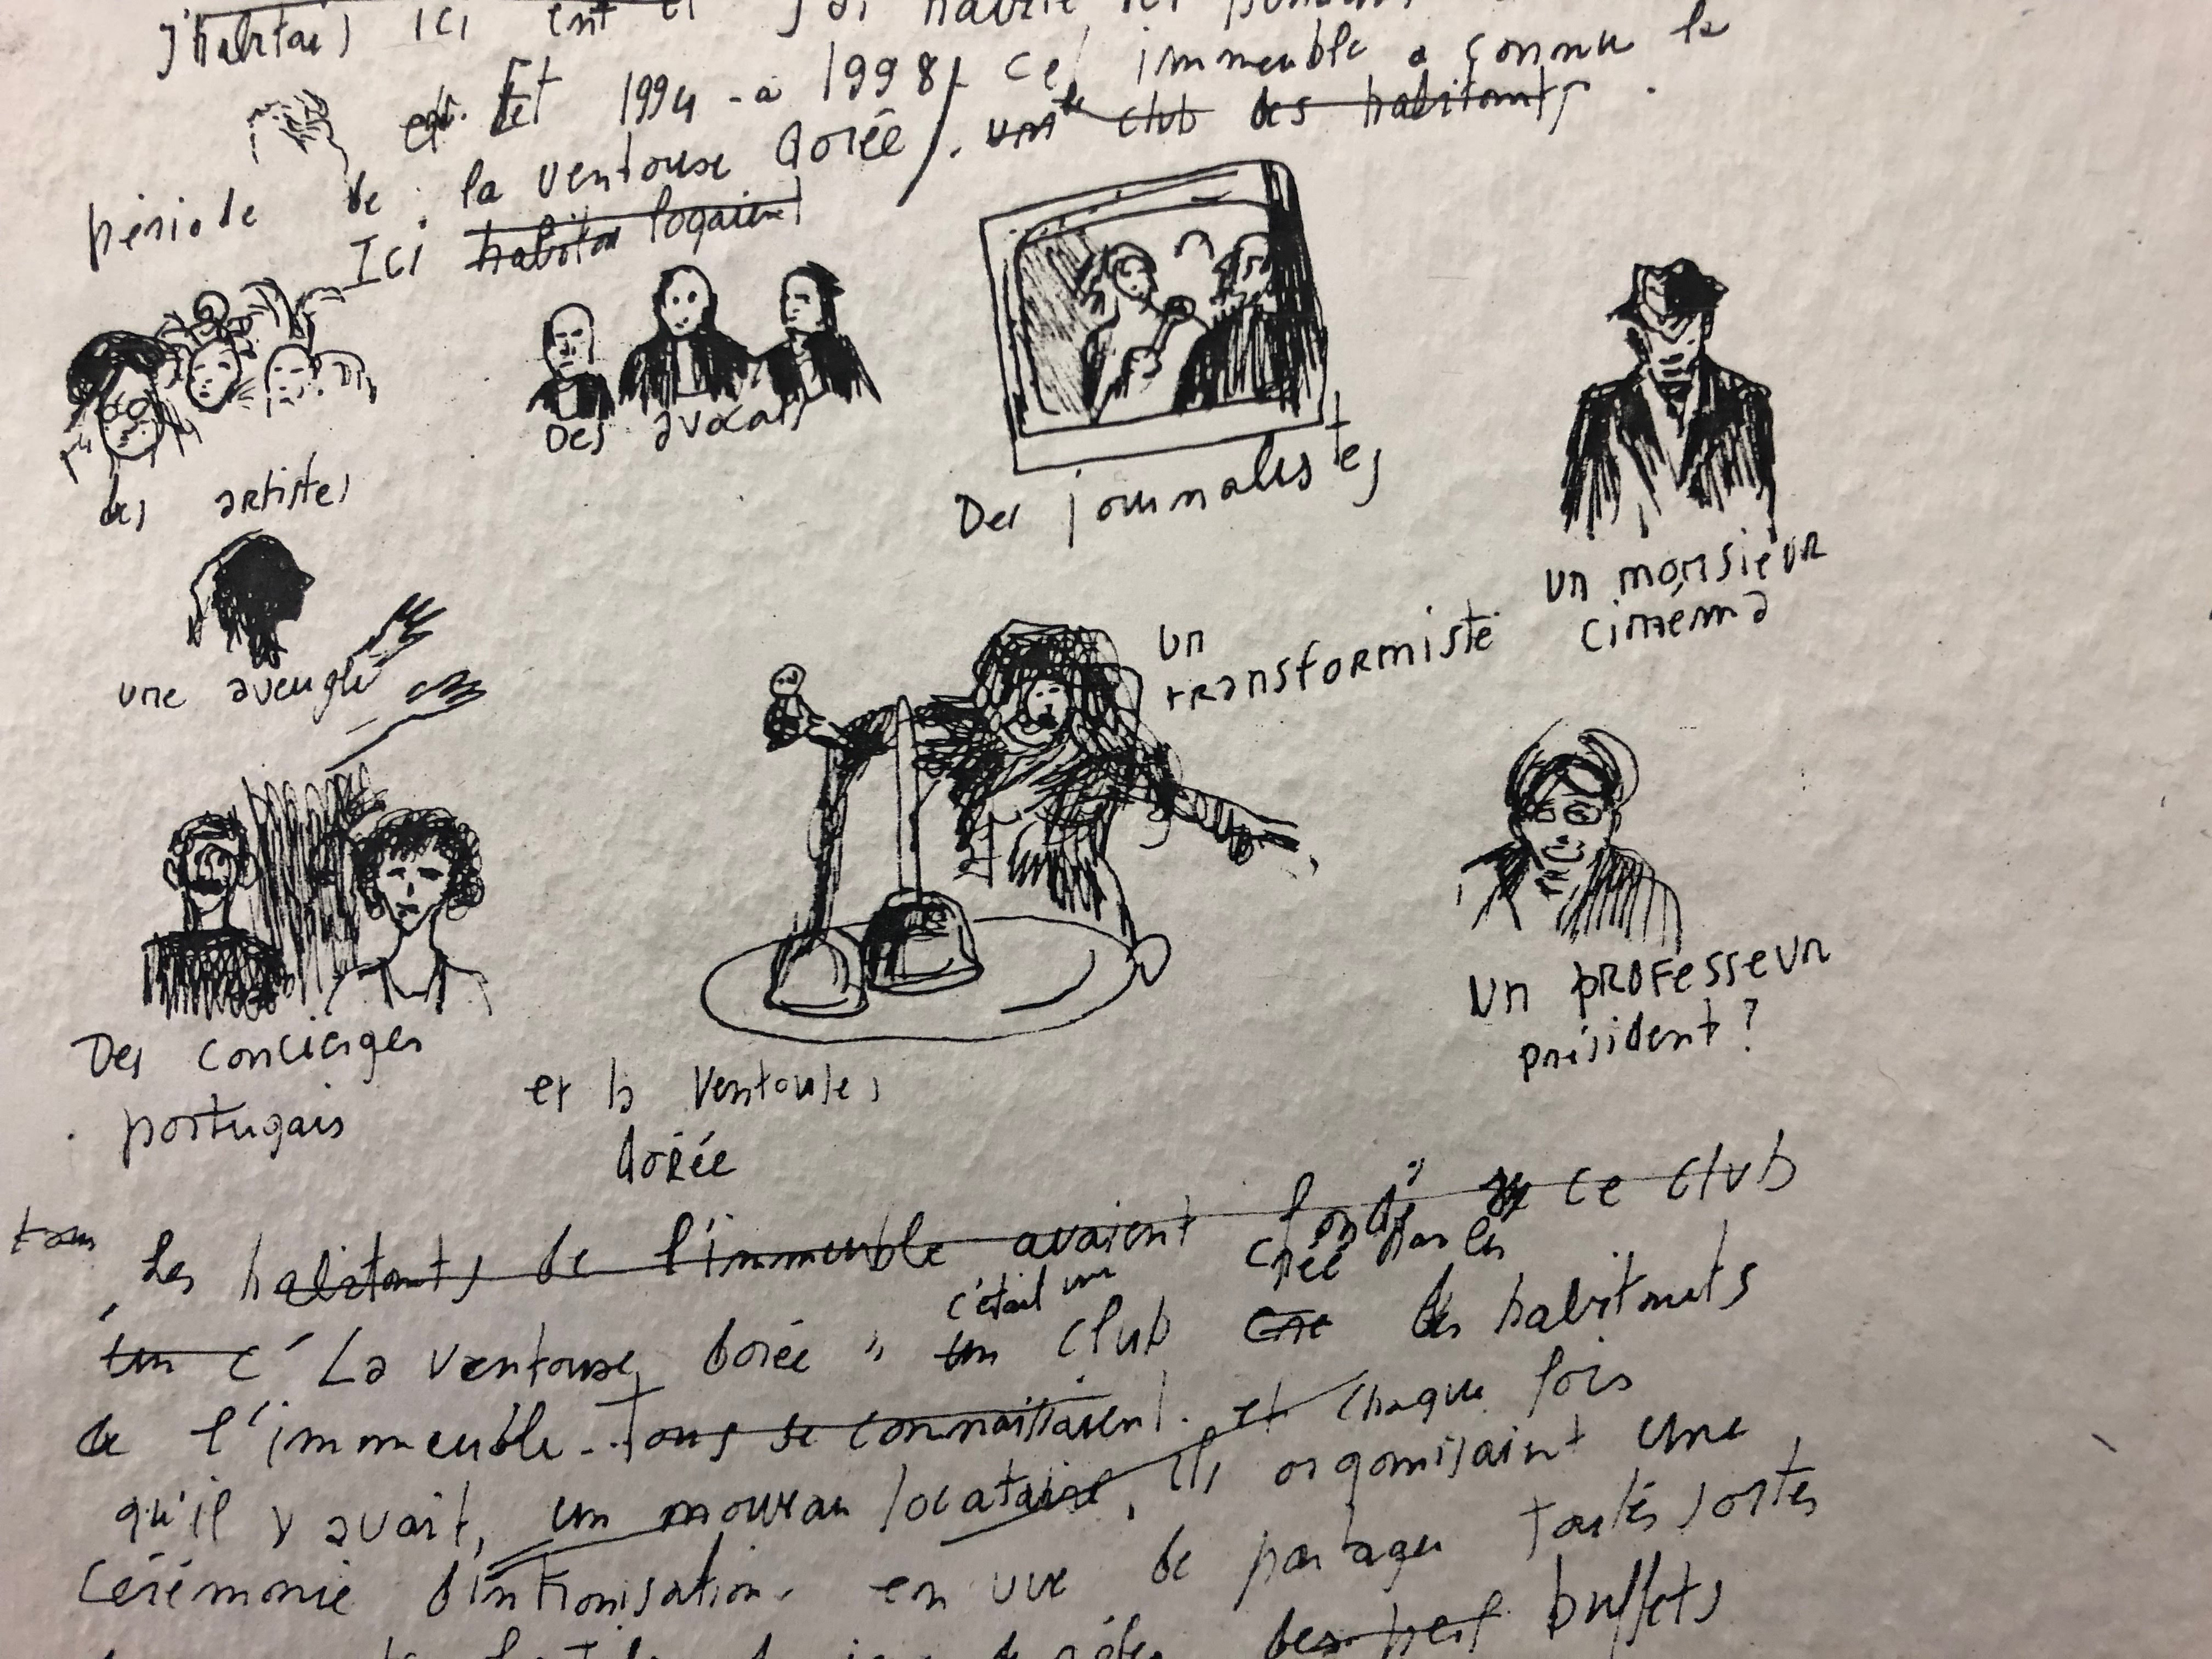 j'habitais ici et j'ai habité ici
et. Et 1994 - à 1998 / Ce immeuble a connu la
période de la ventouse dorée /. un le club des habitants.
Ici habiton logaient
des artistes
Des avocats
Des journalistes
un monsieur
cinéma
une aveugle
un
transformiste
Des concierges
portugais
et la ventouse,
dorée
un professeur
président ?
Les habitants de l'immeuble avaient fondé ce club
c'était une créé par les
un c' La ventouse dorée " un club des habitants
de l'immeuble.. Tous se connaissaient. et chaque fois
qu'il y avait, un nouveau locataire, ils organisaint une
Cérémonie d'intronisation. en vue de partager toutes sortes
des petit buffets